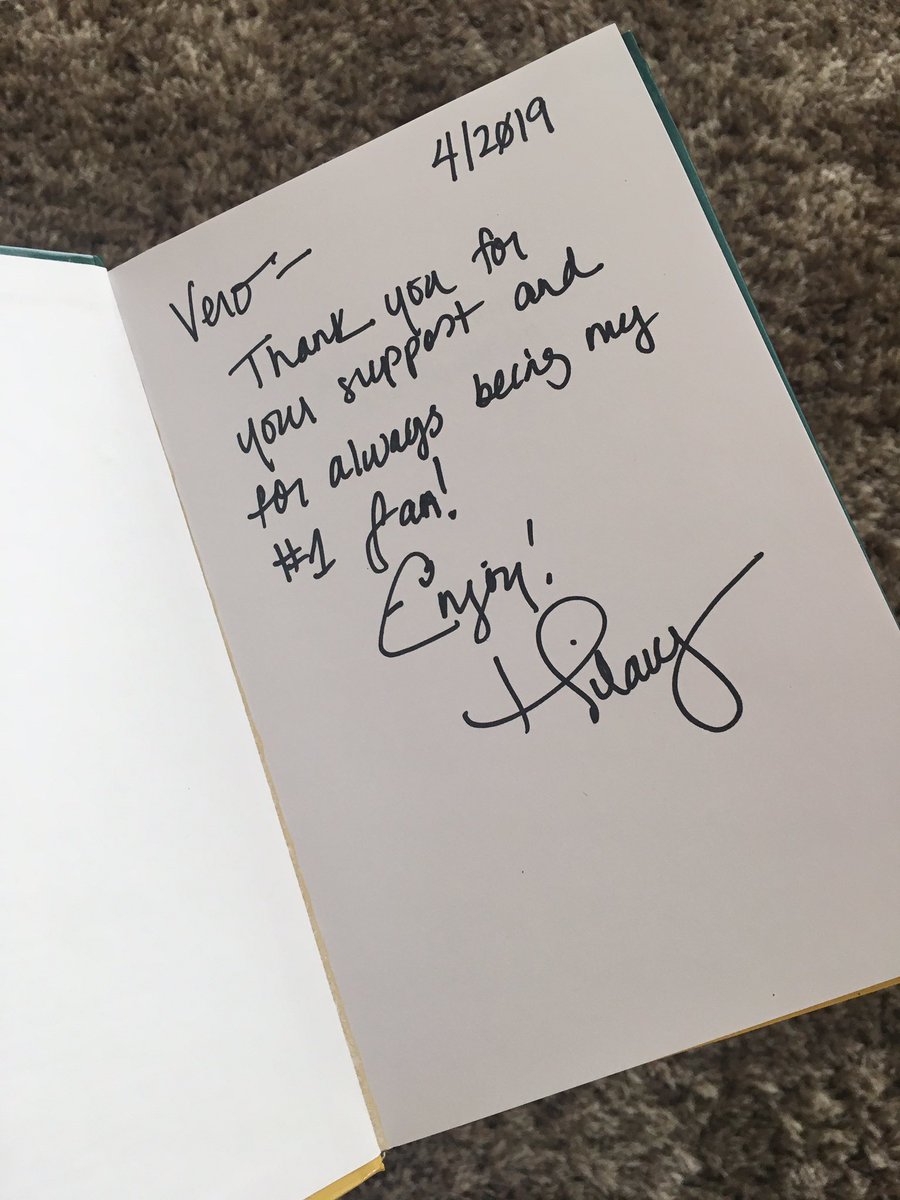 4/2019
Vero-
Thank you for
your support and
for always being my
#1 fan!
Enjoy!
Hilary